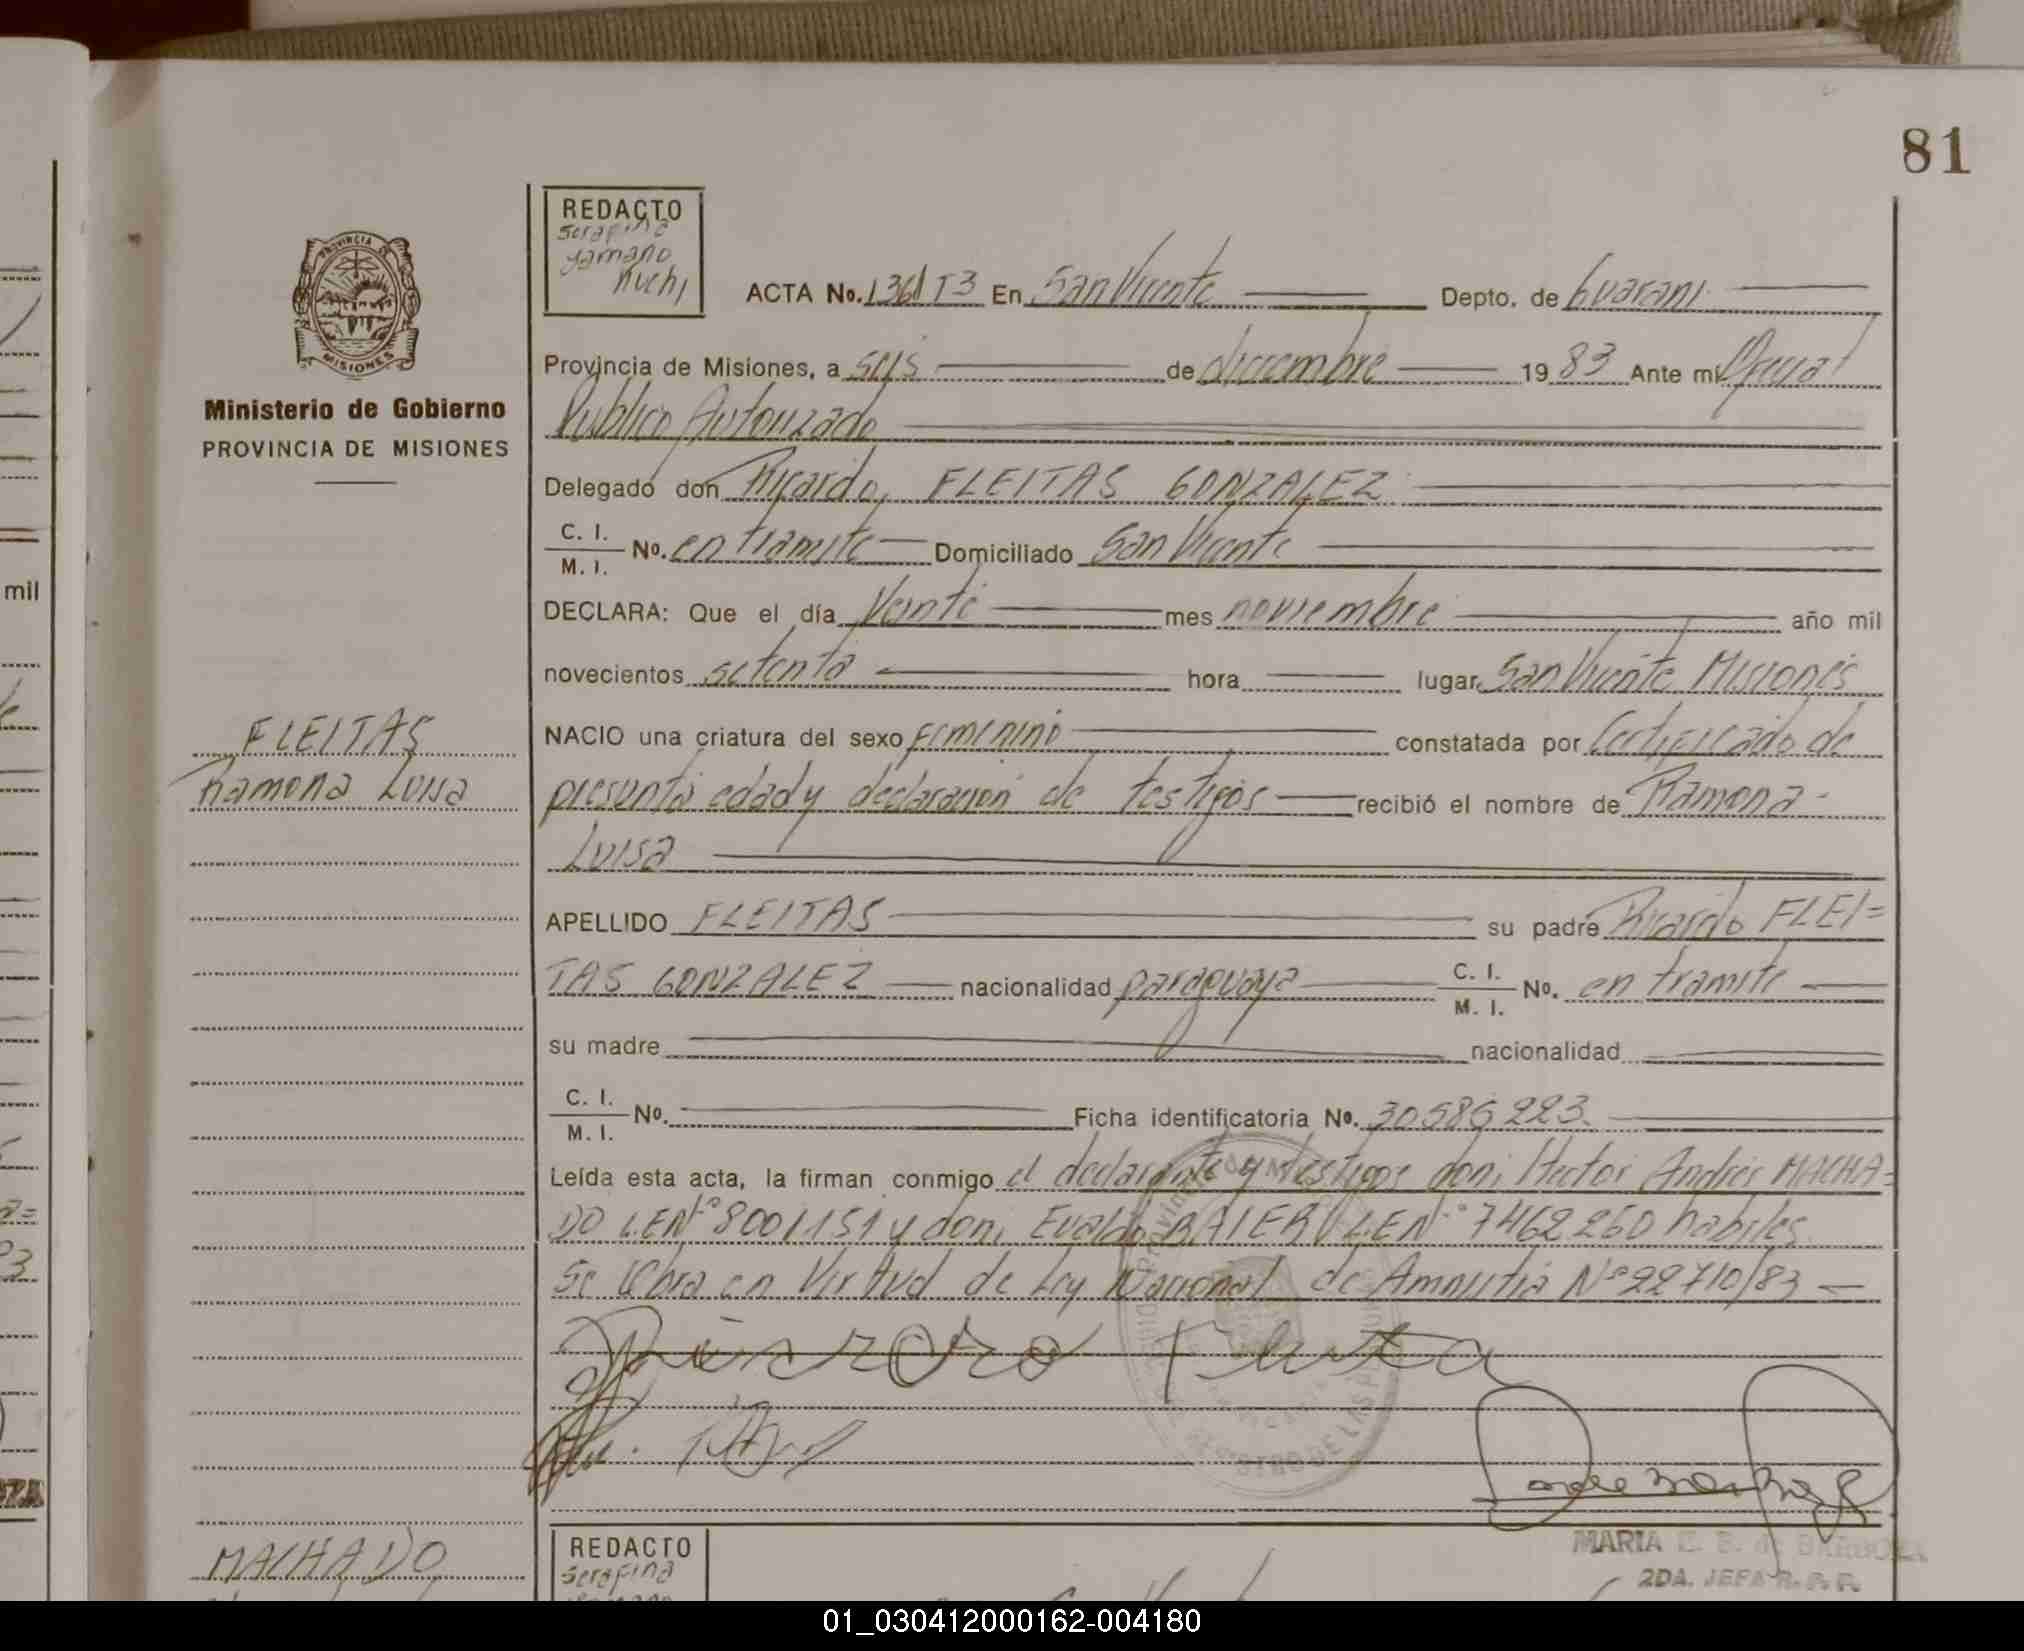 81
REDACTO
Serafina
yamano
huchi
ACTA No. 136 T3 En San Vicente Depto. de Guarani
PROVINCIA DE
MISIONES
Provincia de Misiones, a seis de diciembre 1983 Ante mi Oficial
Ministerio de Gobierno
Publico Autorizado
PROVINCIA DE MISIONES
Delegado don Ricardo, FLEITAS GONZALEZ
C. I.
M. I. No. en tramite Domiciliado San Vicente
mil
DECLARA: Que el día Veinte mes noviembre año mil
novecientos setenta hora lugar San Vicente Misiones
FLEITAS
NACIO una criatura del sexo femenino constatada por Certificado de
Ramona Luisa
presunta edad y declaración de testigos recibió el nombre de Ramona-
Luisa
APELLIDO FLEITAS su padre Ricardo FLEI=
TAS GONZALEZ nacionalidad paraguaya C. I.
M. I. No. en tramite
su madre nacionalidad
C. I.
M. I. No. Ficha identificatoria No. 30585223
Leída esta acta, la firman conmigo el declarante y testigos don, Hector Andrés MACHA=
DO LEN° 8001151 y don, Evaldo BAIER LEN° 7462260 habiles
Se labra en Virtud de Ley Nacional de Amnistia N° 22710/83
MARIA E. B. de BARBOZA
2DA. JEFA R. P. P.
MACHADO
REDACTO
Serafina
01_030412000162-004180